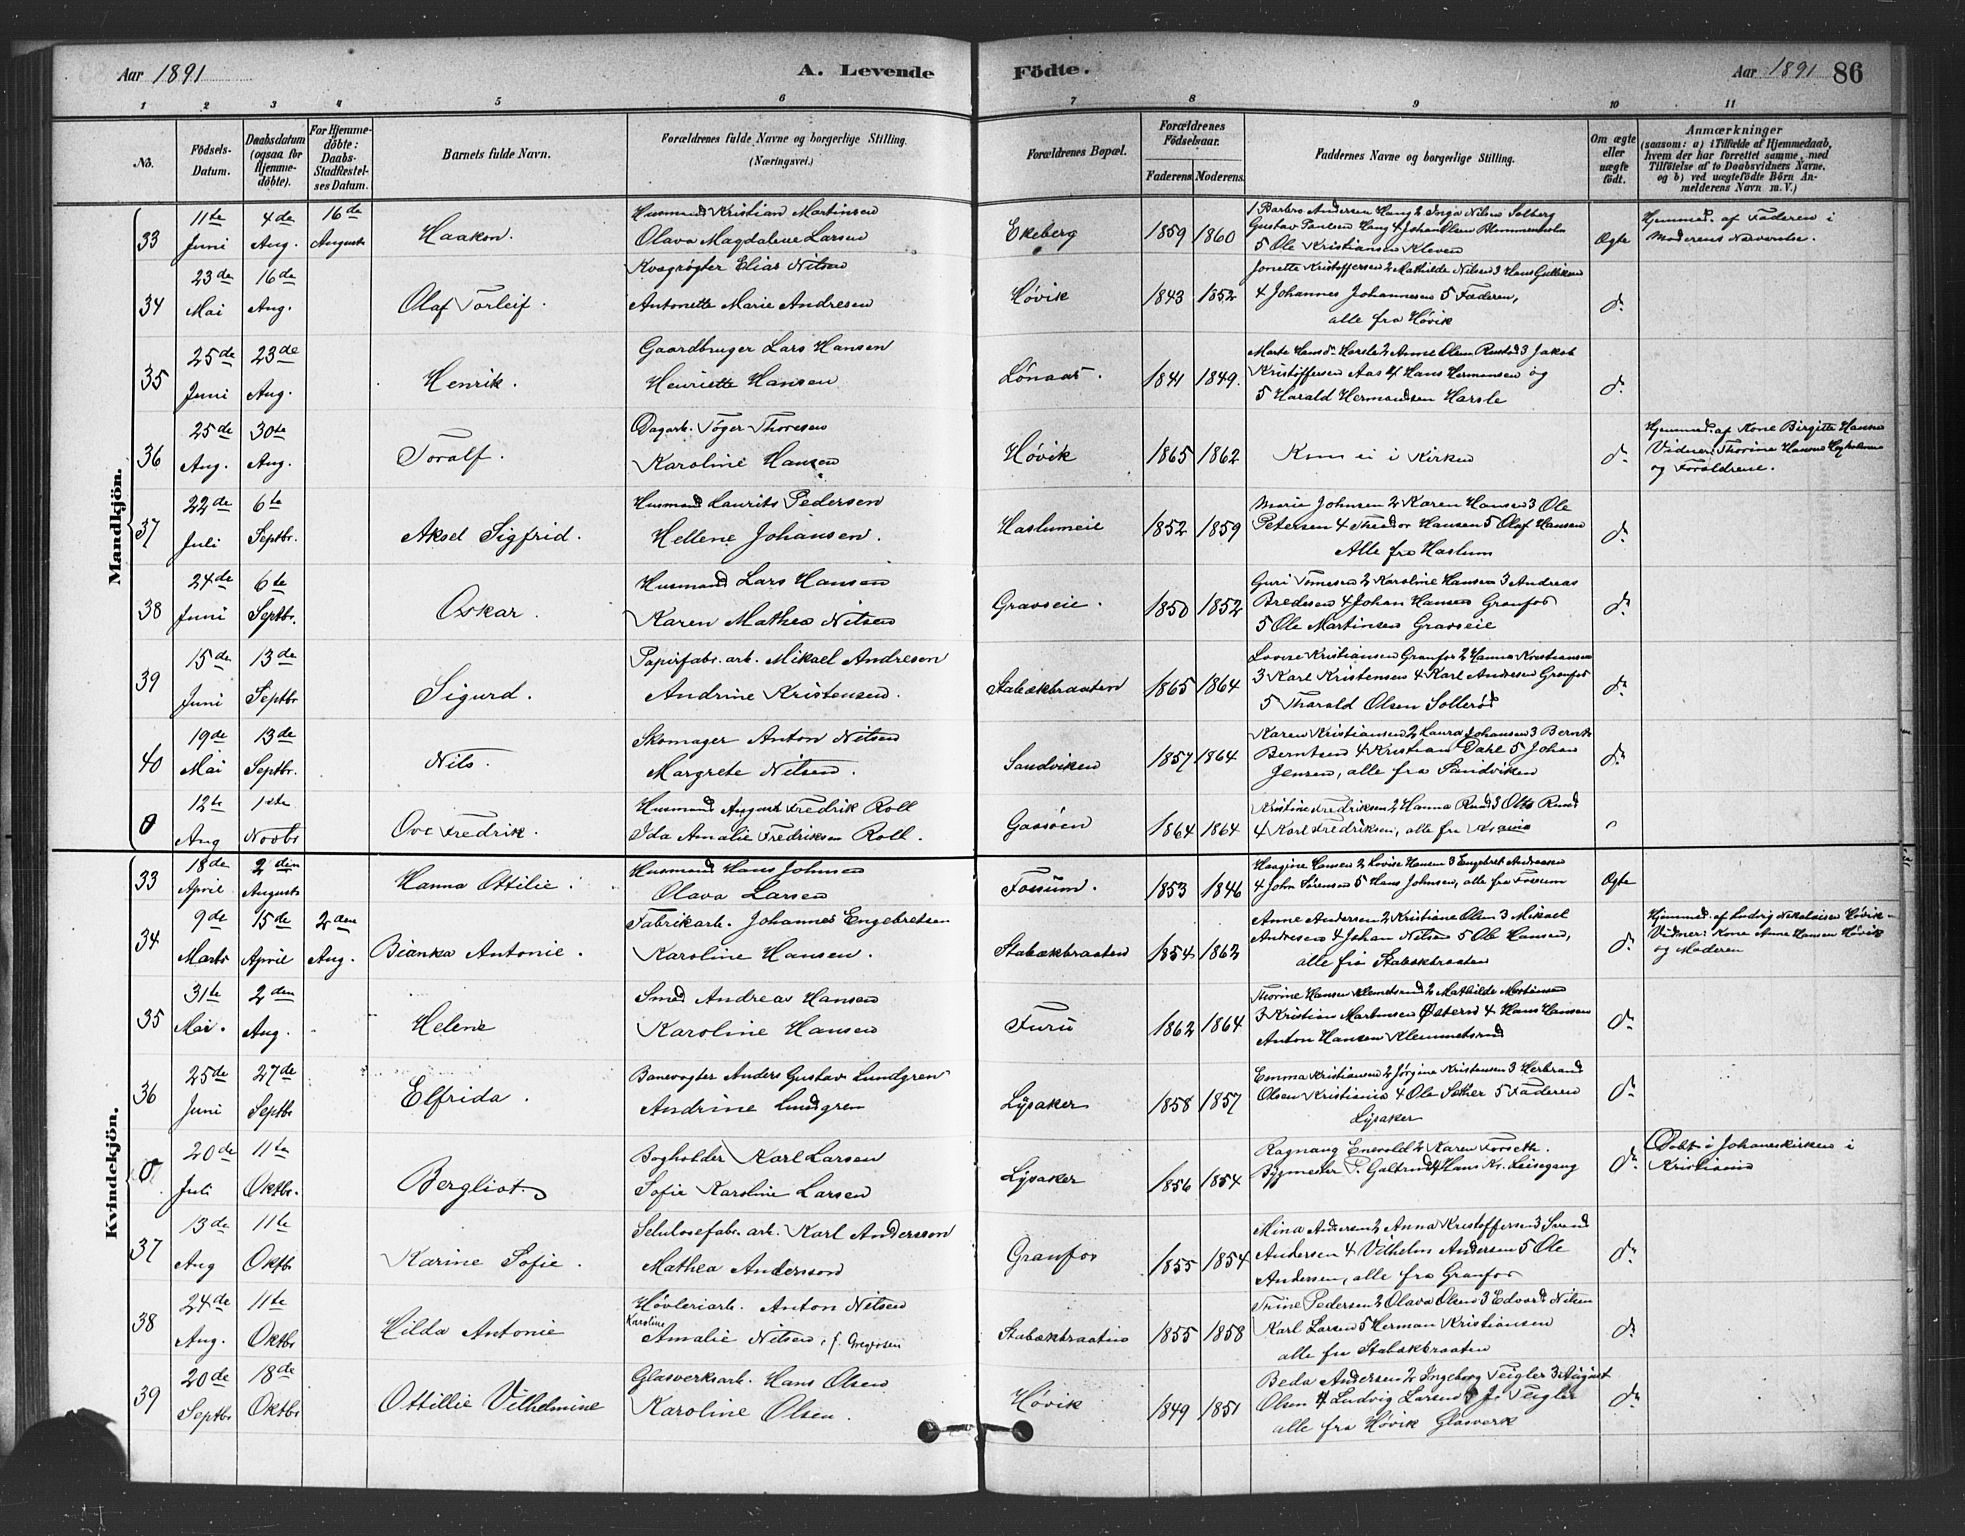 Aar 1891
A. Levende Födte.
Aar 1891 86
1 2 3 4 5 6 7 8 9 10 11
No.
Födsels-Datum.
Daabsdatum (ogsaa for Hjemme-döbte).
For Hjemme-döbte: Daabs-Stadfæstel-ses Datum.
Barnets fulde Navn.
Forældrenes fulde Navne og borgerlige Stilling. (Næringsvei.)
Forældrenes Bopæl.
Forældrenes Födselsaar.
Faderens. Moderens.
Faddernes Navne og borgerlige Stilling.
Om ægte eller uægte födt.
Anmærkninger
(saasom: a) i Tilfælde af Hjemmedaab, hvem der har forrettet samme, med Tilföielse af to Daabsvidners Navne, og b) ved uægtefödte Börn An-melderens Navn m. V.)
Mandkjön.
33 11te Juni 4de Aug. 16de August Haakon. Husmand Kristian Martinsen
Olava Magdalene Larsen Ekeberg 1859 1860 1 Barbro Andersen Haug 2 Inga Nilsen Solberg
Gustav Paulsen Haug 4 Johan Olsen Blommenholm
5 Ole Kristiansen Kleven Ægte Hjemmed. af Faderen i
Moderens Nærværelse.
34 23de Mai 16de Aug. Olaf Torleif. Kvægrøgter Elias Nilsen
Antonette Marie Andresen Høvik 1843 1852 Jonette Kristoffersen 2 Mathilde Nilsen 3 Hans Gulliksen
4 Johannes Johannesen 5 Faderen,
alle fra Høvik do
35 25de Juni 23de Aug. Henrik. Gaardbruger Lars Hansen
Henriette Hansen Lønaas. 1841 1849. Marte Hansd. Harsle 2 Anne Olsen Rustad 3 Jakob
Kristoffersen Aas 4 Hans Hermansen og
5 Harald Hermandsen Harsle do
36 25de Aug. 30te Aug. Toralf. Dagarb. Tøger Thoresen
Karoline Hansen Høvik 1865 1862 Kom ei i Kirken do Hjemmed. af Kone Birgitte Hansen
Vidner: Thorine Hansen
og Forældrene.
37 22de Juli 6te Septbr. Aksel Sigfrid. Husmand Laurits Pedersen
Hellene Johansen. Haslumeie 1852 1859 Marie Johnsen 2 Karen Hansen 3 Ole
Petersen 4 Theodor Hansen 5 Olaf Hansen
Alle fra Haslum do
38 24de Juni 6te Septbr. Oskar. Husmand Lars Hansen
Karen Mathea Nilsen Gravseie. 1850 1852 Guri Tomesen 2 Karoline Hansen 3 Andreas
Bredesen 4 Johan Hansen Granfos
5 Ole Martinsen Gravseie do
39 15de Juni 13de Septbr Sigurd. Papirfabr. arb. Mikael Andresen
Andrine Kristensen. Stabækbraaten 1865 1864 Lovise Kristiansen Granfos 2 Hanna Kristiansen
3 Karl Kristensen 4 Karl Andresen Granfos
5 Tharald Olsen Sollerød do
40 19de Mai 13de Septbr. Nils. Skomager Anton Nilsen
Margrete Nilsen. Sandviken 1857 1864 Karen Kristiansen 2 Laura Johansen 3 Bernt
Berntsen 4 Kristian Dahl 5 Johan
Jensen, alle fra Sandviken do
0 12te Aug 1ste Novbr Ove Fredrik. Husmand August Fredrik Roll
Ida Amalie Fredriksen Roll. Gaasøen 1864 1864 Kristine Fredriksen 2 Hanna Rud 3 Olto Rund
4 Karl Fredriksen, alle fra
Kvindekjön.
33 18de April 2den August Hanna Ottilie. Husmand Hans Johnsen
Olava Larsen Fossum. 1853 1846 Haagine Hansen 2 Lovise Hansen 3 Engebret Andreasen
4 John Sørensen 5 Hans Johnsen, alle fra Fossum Ægte
34 9de Marts 15de April 2den Aug. Bianka Antonie. Fabrikarb. Johannes Engebretsen
Karoline Hansen. Stabækbraaten 1854 1862 Anne Andersen 2 Kristiane Olsen 3 Mikael
Andresen 4 Johan Nilsen 5 Ole Hansen,
alle fra Stabækbraaten do Hjemmed. af Ludvig Nikolaisen Høvik
Vidner: Kone Anne Hansen Høvik
og Moderen
35 31te Mai. 2den Aug. Helene Smed Andreas Hansen
Karoline Hansen Furu 1862 1864 Thorine Hansen Klemetsrud 2 Mathilde Martinsen
3 Kristian Martinsen Østern 4 Hans Hansen
Anton Hansen Klemmetsrud do
36 25de Juni 27de Septbr Elfrida. Banevogter Anders Gustav Lundgren
Andrine Lundgren Lysaker 1858 1857 Emma Kristiansen 2 Jørgine Kristensen 3 Herbrand
Olsen Kristiania 4 Ole Sether 5 Faderen
Lysaker do
0 20de Juli 11te Oktbr. Bergliot. Bogholder Karl Larsen
Sofie Karoline Larsen Lysaker 1856 1854 Ragnang Enevold 2 Karen Forseth.
Bygmester P. Galtrud 4 Hans Kr. Leisegang do Døbt i Johaneskirken i
Kristiania
37 13de Aug 11te Oktbr Karine Sofie. Selulosefabr. arb. Karl Andersson
Mathea Andersson Granfos 1855 1854 Mina Andersen 2 Anna Kristoffersen 3 Severd
Andersen 4 Vilhelm Andersen 5 Ole
Andersen, alle fra Granfos do
38 24de Aug. 11te Oktbr Hilda Antonie Høvleriarb. Anton Nilsen
Karoline
Amalie Nilsen, f. Gregersen Stabækbraaten 1855 1858 Trine Pedersen 2 Olava Olsen 3 Edvard Nilsen
Karl Larsen 5 Herman Kristiansen
alle fra Stabækbraaten do
39 20de Septbr 18de Oktbr Ottillie Vilhelmine Glasverksarb. Hans Olsen
Karoline Olsen. Høvik 1849 1851 Beda Andersen 2 Ingeborg Teigler 3 August
Olsen 4 Ludvig Larsen 5 J. Teigler
alle fra Høvik Glasverk do